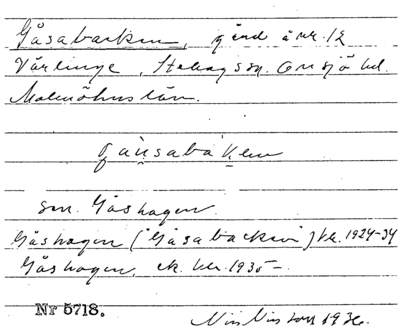 Gåsabacken, gård å nr. 12
Värlinge, Stehag sn. Onsjö hd.
Malmöhus län.
gåu̠sabak̠en
sm. Gåshagen
Gåshagen ("Gåsabacken") kb. 1924-34
Gåshagen, ek. kb. 1935-
Nr 5718.
Nils Nilsson 1936.